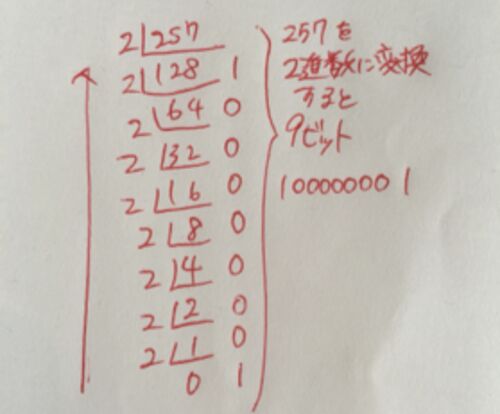 2 257
2 128 1
2 64 0
2 32 0
2 16 0
2 8 0
2 4 0
2 2 0
2 1 0
0 1
257を
2進数に変換
すると
9ビット
100000001